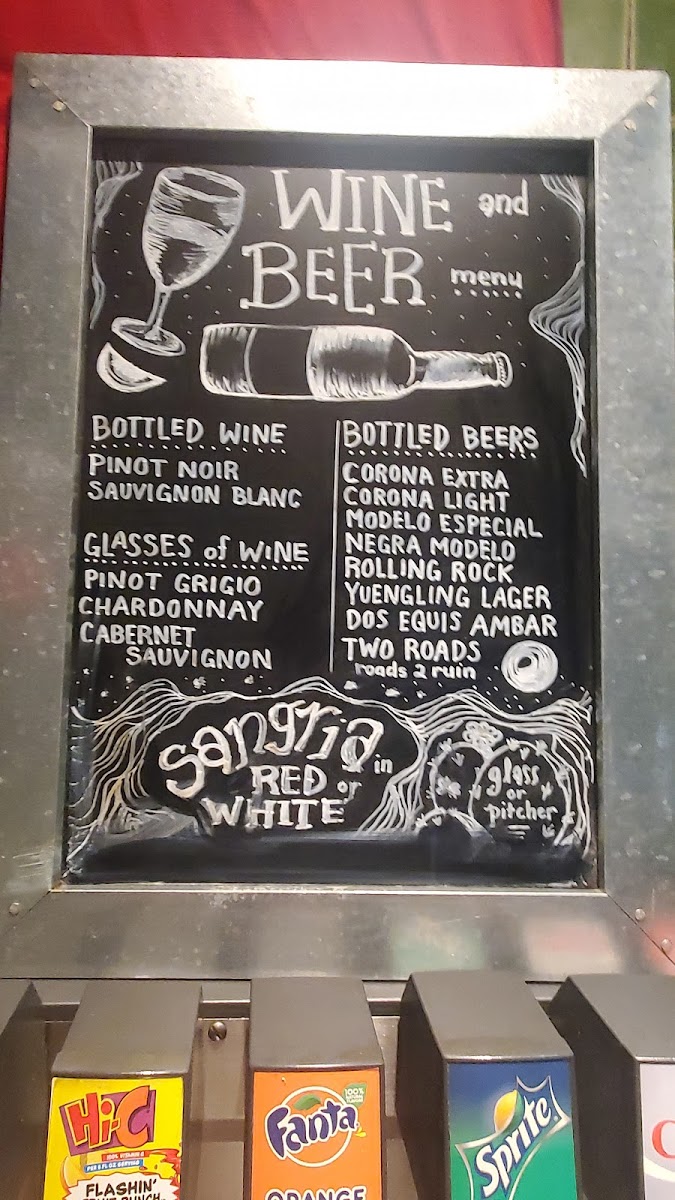 WINE and
BEER menu
BOTTLED WINE
PINOT NOIR
SAUVIGNON BLANC
GLASSES of WINE
PINOT GRIGIO
CHARDONNAY
CABERNET
SAUVIGNON
BOTTLED BEERS
CORONA EXTRA
CORONA LIGHT
MODELO ESPECIAL
NEGRA MODELO
ROLLING ROCK
YUENGLING LAGER
DOS EQUIS AMBAR
TWO ROADS
roads 2 ruin
sangria in
RED or
WHITE
glass
or
pitcher
Hi-C
FLASHIN'
FRUIT PUNCH
100%
Fanta
ORANGE
Sprite